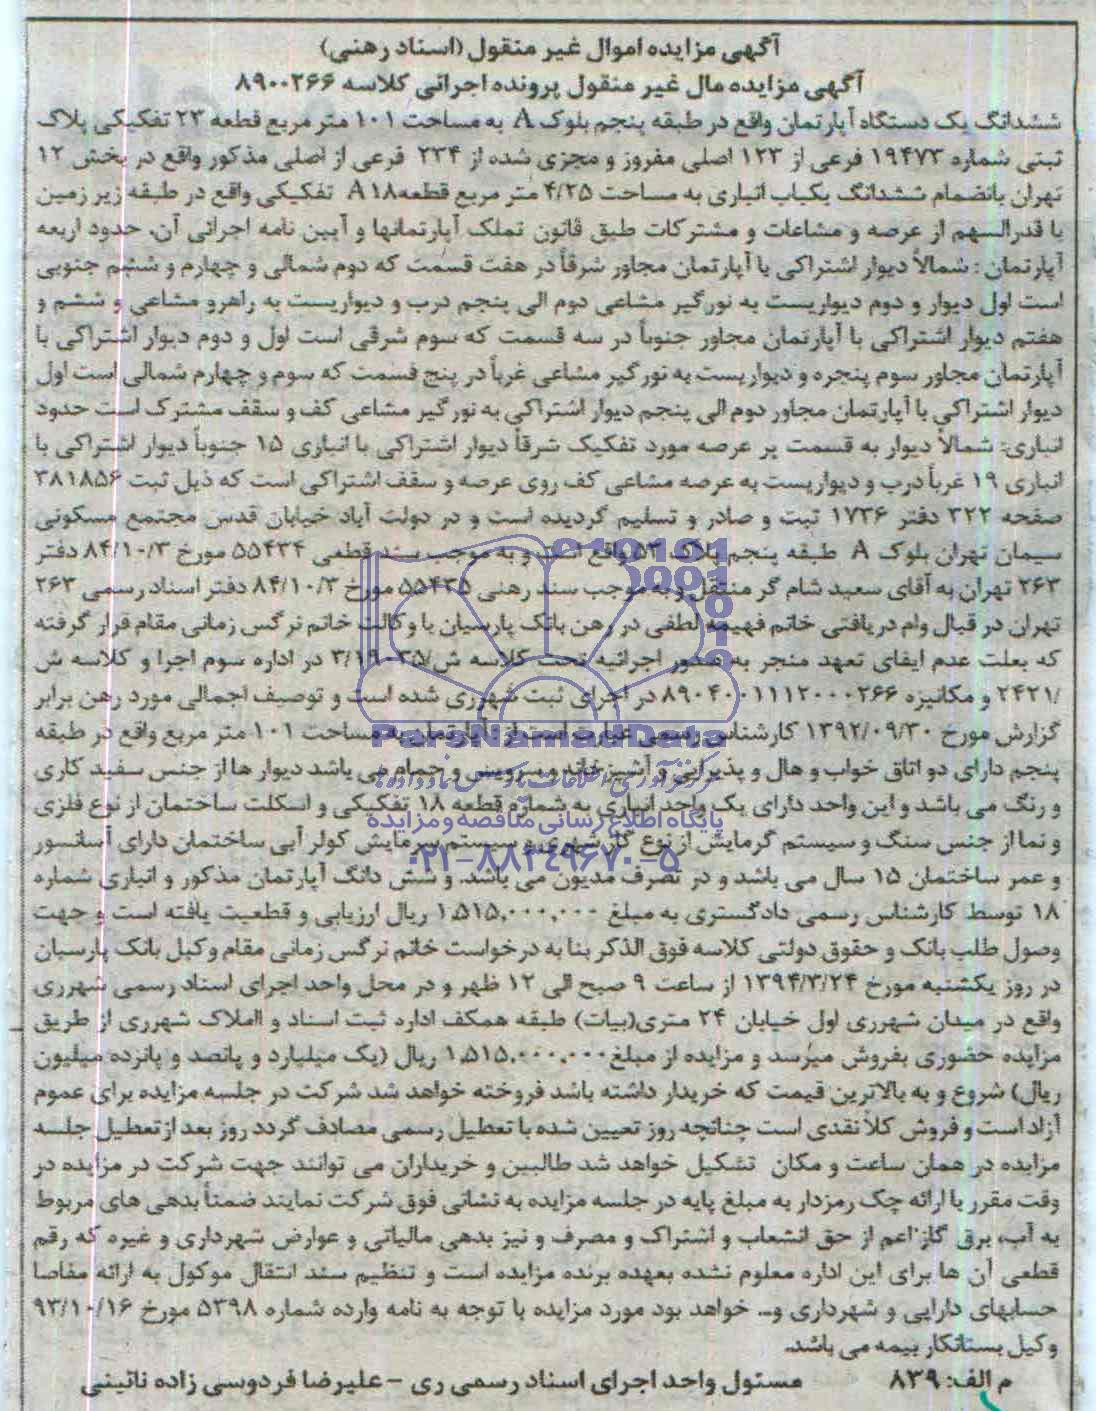 آگهی مزایده اموال غیر منقول (اسناد رهنی)
آگهی مزایده مال غیر منقول پرونده اجرائی کلاسه ۸۹۰۰۲۶۶
ششدانگ یک دستگاه آپارتمان واقع در طبقه پنجم بلوک A به مساحت ۱۰۱ متر مربع قطعه ۲۳ تفکیکی پلاک
ثبتی شماره ۱۹۴۷۳ فرعی از ۱۲۳ اصلی مفروز و مجزی شده از ۲۳۴ فرعی از اصلی مذکور واقع در بخش ۱۲
تهران بانضمام ششدانگ یکباب انباری به مساحت ۴/۲۵ متر مربع قطعه ۱۸ A تفکیکی واقع در طبقه زیر زمین
با قدرالسهم از عرصه و مشاعات و مشترکات طبق قانون تملک آپارتمانها و آیین نامه اجرائی آن. حدود اربعه
آپارتمان : شمالاً دیوار اشتراکی با آپارتمان مجاور شرقاً در هفت قسمت که دوم شمالی و چهارم و ششم جنوبی
است اول دیوار و دوم دیواریست به نورگیر مشاعی دوم الی پنجم درب و دیواریست به راهرو مشاعی و ششم و
هفتم دیوار اشتراکی با آپارتمان مجاور جنوباً در سه قسمت که سوم شرقی است اول و دوم دیوار اشتراکی با
آپارتمان مجاور سوم پنجره و دیواریست به نورگیر مشاعی غرباً در پنج قسمت که سوم و چهارم شمالی است اول
دیوار اشتراکی با آپارتمان مجاور دوم الی پنجم دیوار اشتراکی به نورگیر مشاعی کف و سقف مشترک است حدود
انباری: شمالاً دیوار به قسمت پر عرصه مورد تفکیک شرقاً دیوار اشتراکی با انباری ۱۵ جنوباً دیوار اشتراکی با
انباری ۱۹ غرباً درب و دیواریست به عرصه مشاعی کف روی عرصه و سقف اشتراکی است که ذیل ثبت ۳۸۱۸۵۶
صفحه ۳۲۲ دفتر ۱۷۳۶ ثبت و صادر و تسلیم گردیده است و در دولت آباد خیابان قدس مجتمع مسکونی
سیمان تهران بلوک A طبقه پنجم پلاک ۵۳ واقع است و به موجب سند قطعی ۵۵۴۳۴ مورخ ۸۴/۱۰/۳ دفتر
۲۶۳ تهران به آقای سعید شام گر منتقل و به موجب سند رهنی ۵۵۴۳۵ مورخ ۸۴/۱۰/۳ دفتر اسناد رسمی ۲۶۳
تهران در قبال وام دریافتی خانم فهیمه لطفی در رهن بانک پارسیان با وکالت خانم نرگس زمانی مقام قرار گرفته
که بعلت عدم ایفای تعهد منجر به صدور اجرائیه تحت کلاسه ش/۳/۱۹۰۳۵ در اداره سوم اجرا و کلاسه ش
/۲۴۲۱ و مکانیزه ۸۹۰۴۰۰۱۱۱۲۰۰۰۲۶۶ در اجرای ثبت شهرری شده است و توصیف اجمالی مورد رهن برابر
گزارش مورخ ۱۳۹۲/۰۹/۳۰ کارشناس رسمی عبارت است از : آپارتمان به مساحت ۱۰۱ متر مربع واقع در طبقه
پنجم دارای دو اتاق خواب و هال و پذیرایی و آشپزخانه و سرویس و حمام می باشد دیوار ها از جنس سفید کاری
و رنگ می باشد و این واحد دارای یک واحد انباری به شماره قطعه ۱۸ تفکیکی و اسکلت ساختمان از نوع فلزی
و نما از جنس سنگ و سیستم گرمایش از نوع گاز شهری و سیستم سرمایش کولر آبی ساختمان دارای آسانسور
و عمر ساختمان ۱۵ سال می باشد و در تصرف مدیون می باشد. و شش دانگ آپارتمان مذکور و انباری شماره
۱۸ توسط کارشناس رسمی دادگستری به مبلغ ۱،۵۱۵،۰۰۰،۰۰۰ ریال ارزیابی و قطعیت یافته است و جهت
وصول طلب بانک و حقوق دولتی کلاسه فوق الذکر بنا به درخواست خانم نرگس زمانی مقام وکیل بانک پارسیان
در روز یکشنبه مورخ ۱۳۹۴/۳/۲۴ از ساعت ۹ صبح الی ۱۲ ظهر و در محل واحد اجرای اسناد رسمی شهرری
واقع در میدان شهرری اول خیابان ۲۴ متری(بیات) طبقه همکف اداره ثبت اسناد و املاک شهرری از طریق
مزایده حضوری بفروش میرسد و مزایده از مبلغ ۱،۵۱۵،۰۰۰،۰۰۰ ریال (یک میلیارد و پانصد و پانزده میلیون
ریال) شروع و به بالاترین قیمت که خریدار داشته باشد فروخته خواهد شد شرکت در جلسه مزایده برای عموم
آزاد است و فروش کلاً نقدی است چنانچه روز تعیین شده با تعطیل رسمی مصادف گردد روز بعد از تعطیل جلسه
مزایده در همان ساعت و مکان تشکیل خواهد شد طالبین و خریداران می توانند جهت شرکت در مزایده در
وقت مقرر با ارائه چک رمزدار به مبلغ پایه در جلسه مزایده به نشانی فوق شرکت نمایند ضمناً بدهی های مربوط
به آب، برق گاز اعم از حق انشعاب و اشتراک و مصرف و نیز بدهی مالیاتی و عوارض شهرداری و غیره که رقم
قطعی آن ها برای این اداره معلوم نشده بعهده برنده مزایده است و تنظیم سند انتقال موکول به ارائه مفاصا
حسابهای دارایی و شهرداری و... خواهد بود مورد مزایده با توجه به نامه وارده شماره ۵۳۹۸ مورخ ۹۳/۱۰/۱۶
وکیل بستانکار بیمه می باشد.
م الف: ۸۳۹ مسئول واحد اجرای اسناد رسمی ری - علیرضا فردوسی زاده نائینی
ParsNamadData
پایگاه اطلاع رسانی مناقصه و مزایده
۰۲۱-۸۸۳۴۹۶۷۰-۵